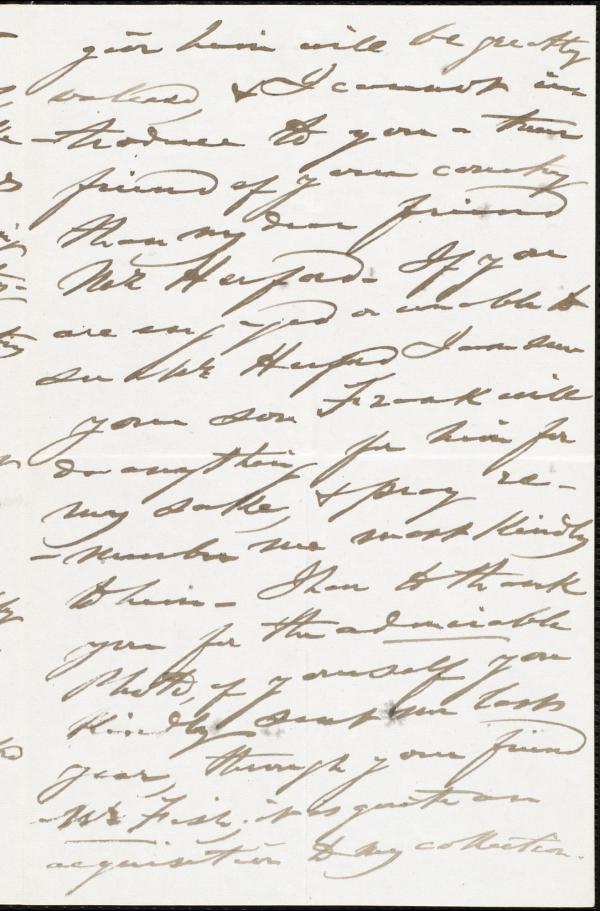 give him will be greatly
valued, & I cannot in
-troduce to you a truer
friend of your country
than my dear friend
Mr Herford. If you
are engaged or unable to
see Mr Herford I am sure
your son Frank will
do anything for him for
my sake, & pray re-
-member me most kindly
to him - I have to thank
you for the admirable
Photo, of yourself you
kindly sent me last
year, through your friend
Mr Fish, it is quite an
acquisition to my collection.